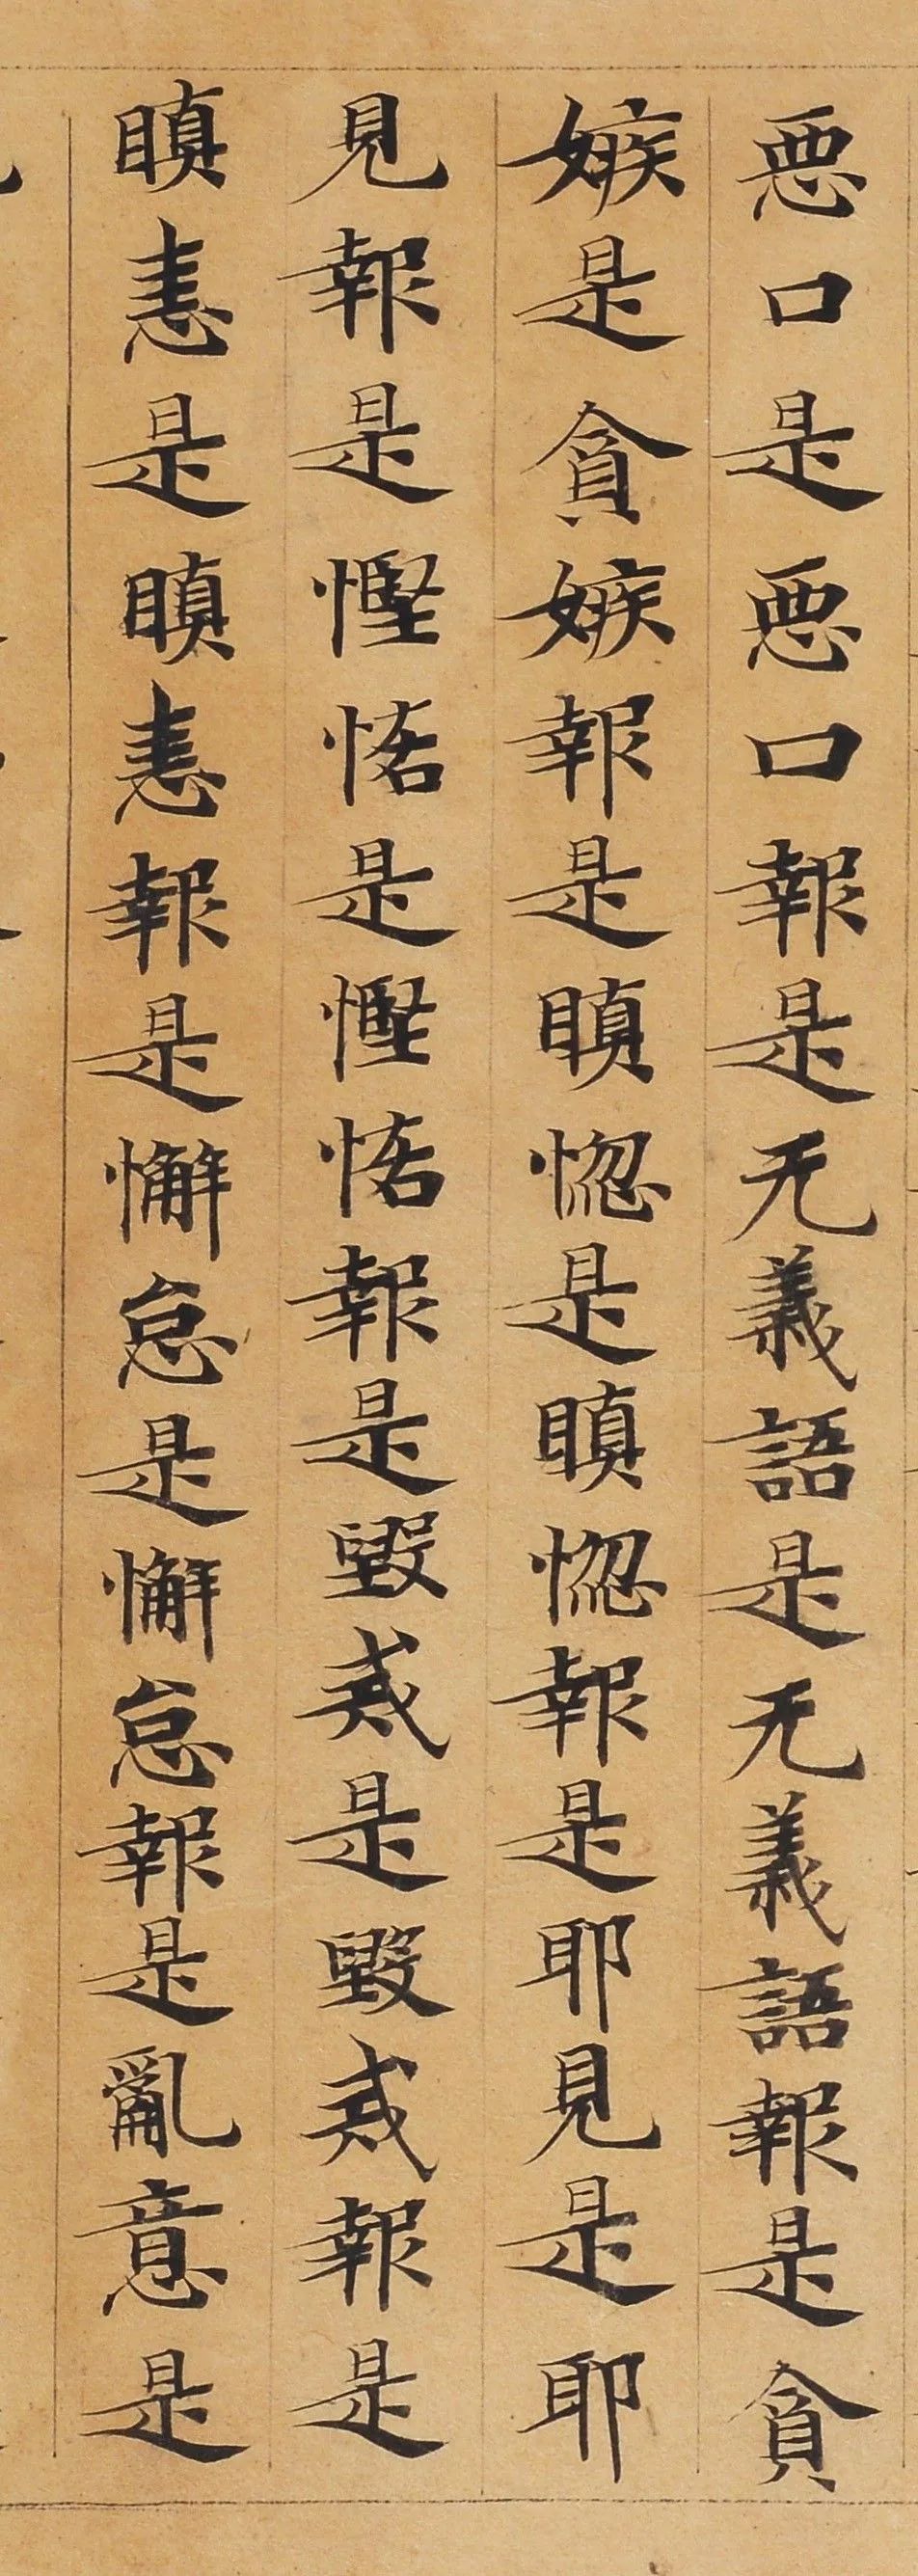 惡口是惡口報是无義語是无義語報是貪
嫉是貪嫉報是瞋惚是瞋惚報是耶見是耶
見報是慳悋是慳悋報是毀戒是毀戒報是
瞋恚是瞋恚報是懈怠是懈怠報是亂意是